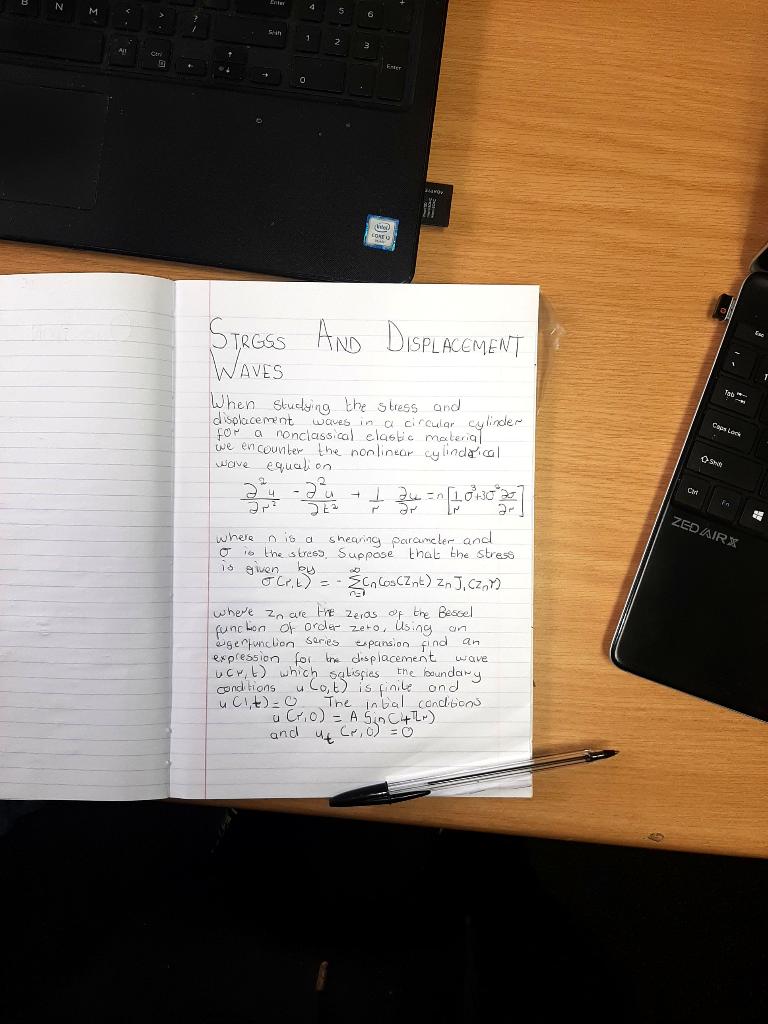 B N M < , > . ? / Enter 4 5 6 +
Shift 1 2 3
Alt Ctrl Enter
0
intel
CORE i3
STRESS AND DISPLACEMENT
WAVES
When studying the stress and
displacement waves in a circular cylinder
for a nonclassical elastic material
we encounter the nonlinear cylindrical
wave equation
∂²u/∂r² - ∂²u/∂t² + 1/r ∂u/∂r = n[1/r σ³+3σ²∂σ/∂r]
where n is a shearing parameter and
σ is the stress. Suppose that the stress
is given by
σ(r,t) = - ∑_{n=1}^{∞} Cn Cos(Znt) Zn J₁(Znr)
where Zn are the zeros of the Bessel
function of order zero, Using an
eigenfunction series expansion find an
expression for the displacement wave
u(r,t) which satisfies the boundary
conditions u(0,t) is finite and
u(1,t)=0 The initial conditions
u(r,0) = A Sin(4πr)
and u_t(r,0) = 0
Esc
Tab
Caps Lock
Shift
Ctrl Fn
ZED AIR X